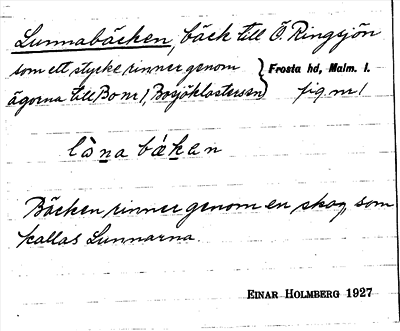 Lunnabäcken, bäck till Ö. Ringsjön
som ett stycke rinner genom } Frosta hd, Malm. l.
ägorna till Bo nr 1, Bosjöklosters sn } fig nr 1
lȧ̀na bæken
Bäcken rinner genom en skog, som
kallas Lunnarna.
EINAR HOLMBERG 1927